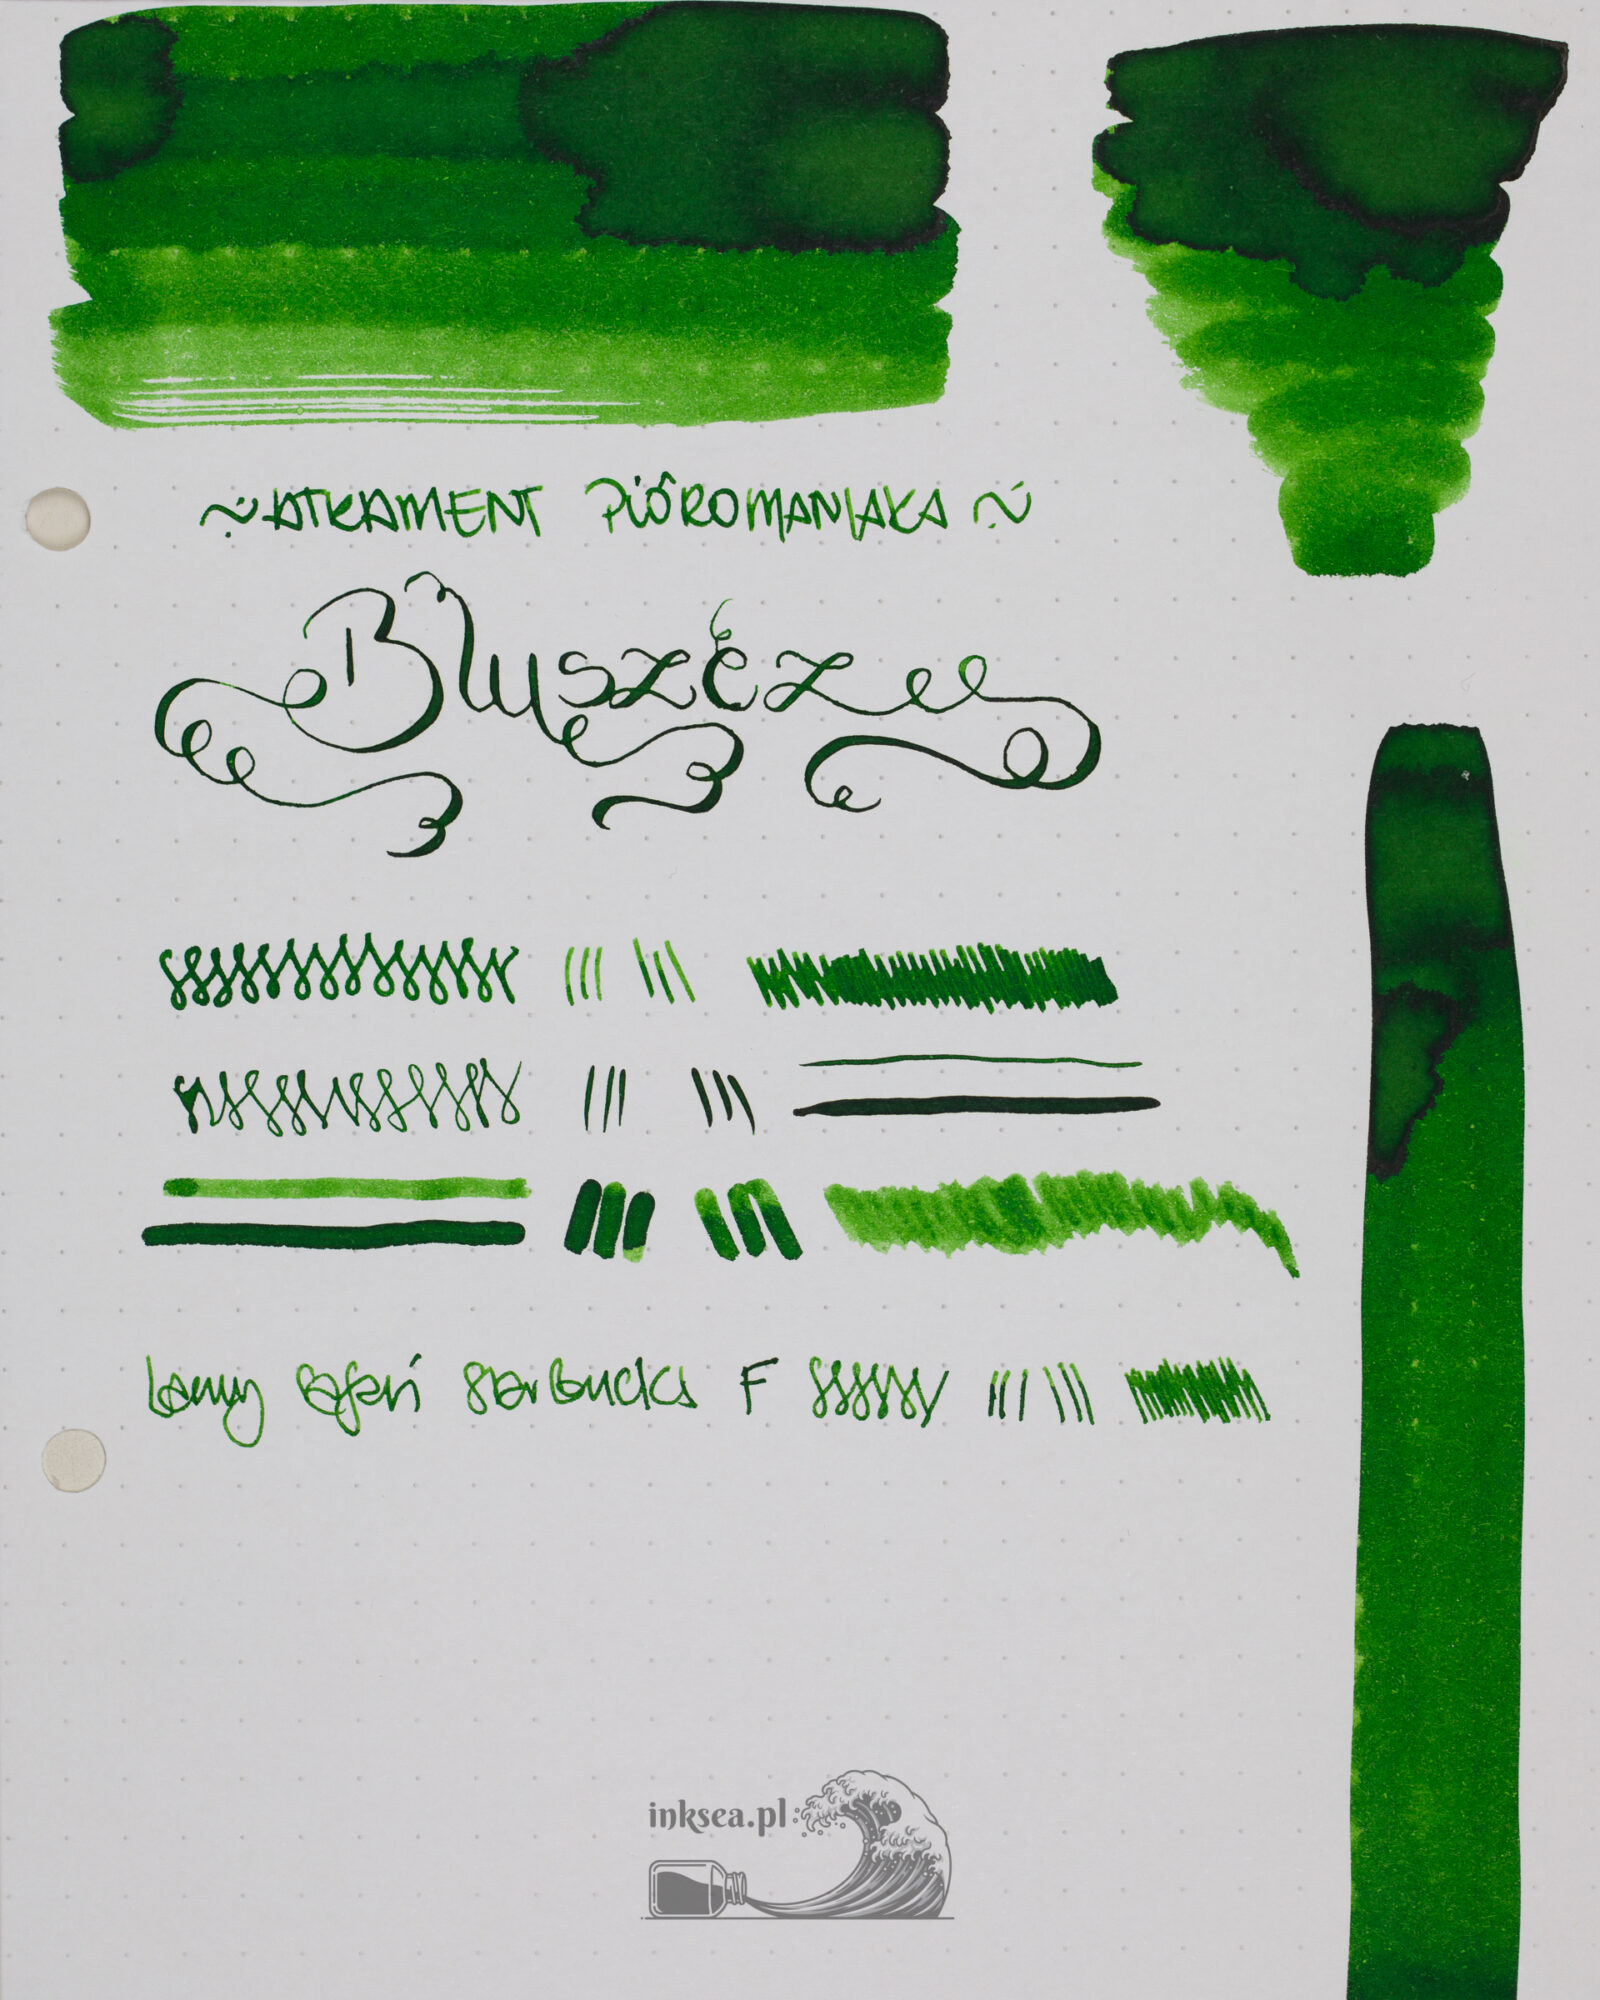 ~ATRAMENT PIÓROMANIAKA~
Bluszcz
Lamy Safari Starbucks F
inksea.pl